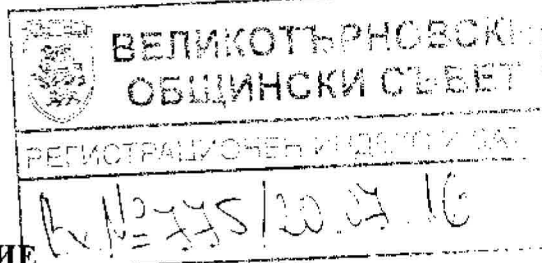 ВЕЛИКОТЪРНОВСКИ
ОБЩИНСКИ СЪВЕТ
РЕГИСТРАЦИОНЕН ИНДЕКС И ДАТ
Вх №775/20.07.16
ИЕ